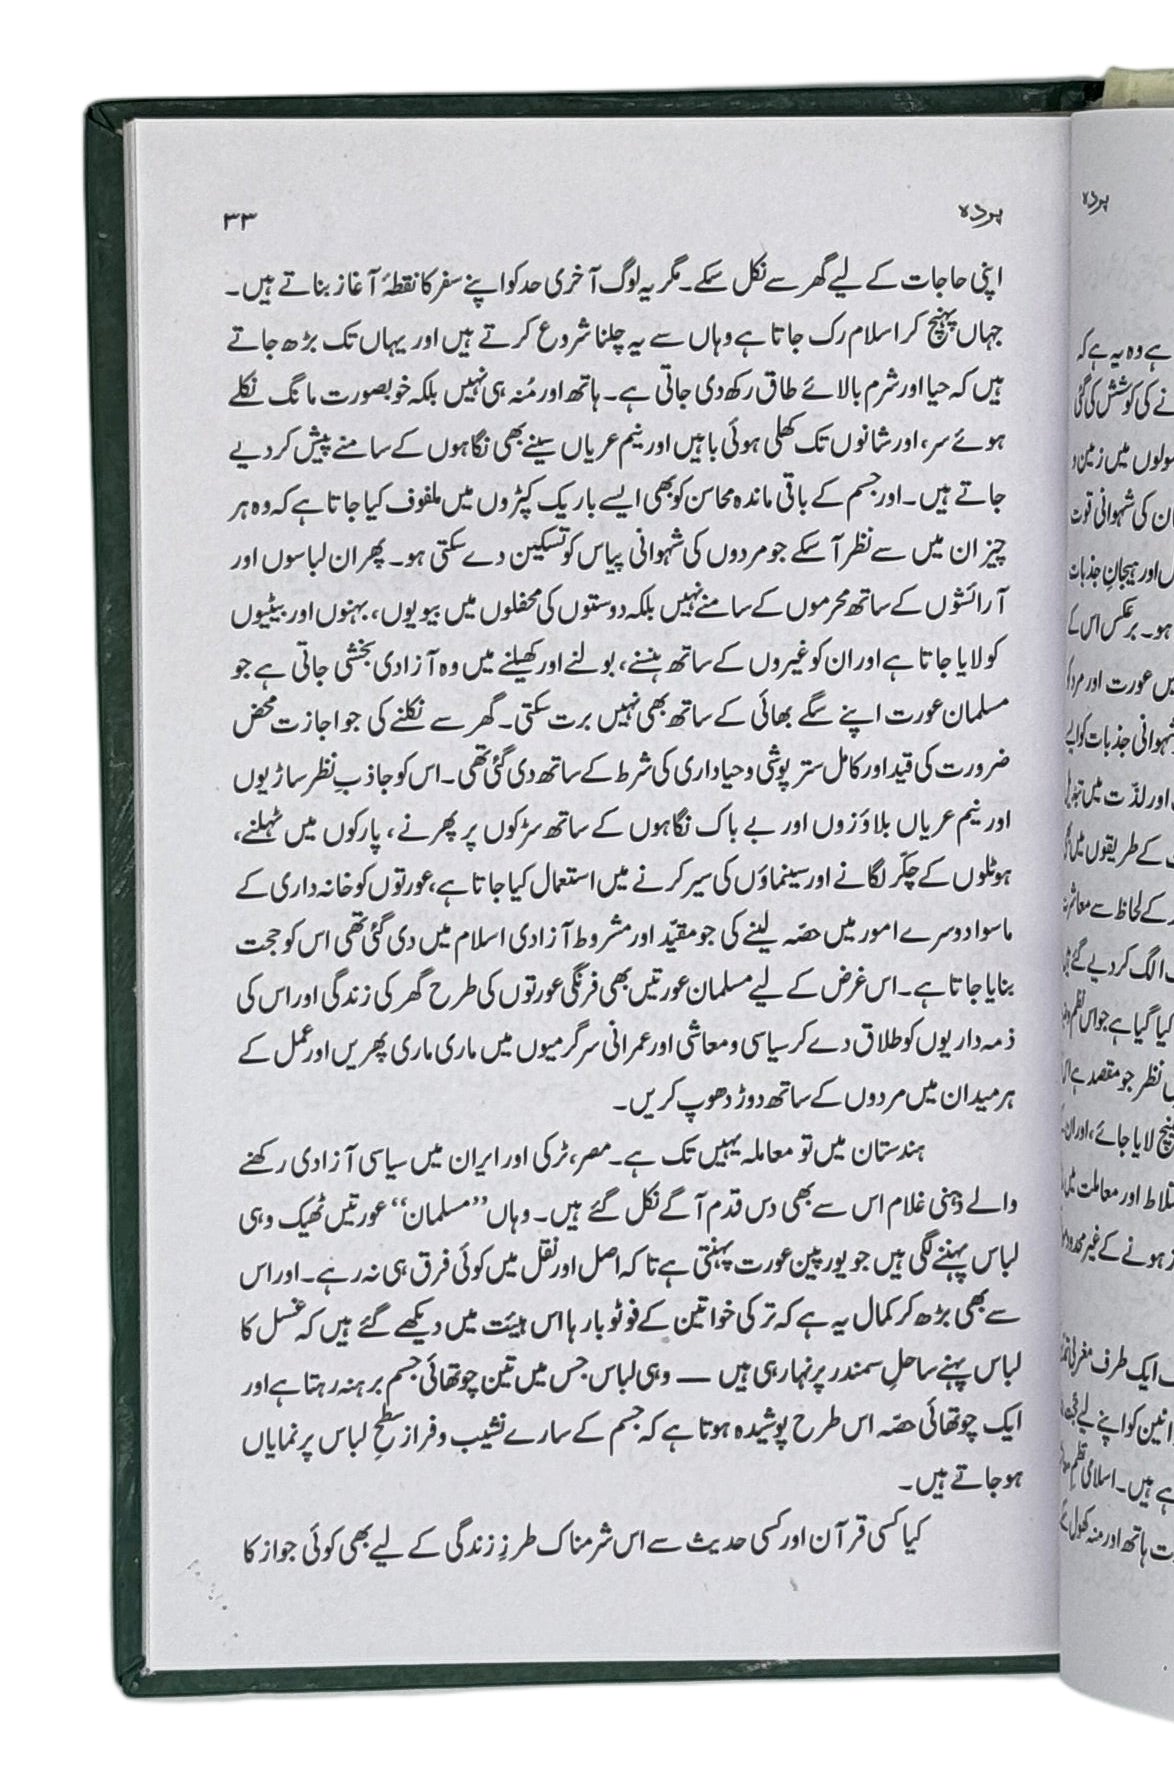 پردہ ۳۳
اپنی حاجات کے لیے گھر سے نکل سکے۔ مگر یہ لوگ آخری حد کو اپنے سفر کا نقطۂ آغاز بناتے ہیں۔
جہاں پہنچ کر اسلام رک جاتا ہے وہاں سے یہ چلنا شروع کرتے ہیں اور یہاں تک بڑھ جاتے
ہیں کہ حیا اور شرم بالائے طاق رکھ دی جاتی ہے۔ ہاتھ اور مُنہ ہی نہیں بلکہ خوبصورت مانگ نکلے
ہوئے سر، اور شانوں تک کھلی ہوئی باہیں اور نیم عریاں سینے بھی نگاہوں کے سامنے پیش کر دیے
جاتے ہیں۔ اور جسم کے باقی ماندہ محاسن کو بھی ایسے باریک کپڑوں میں ملفوف کیا جاتا ہے کہ وہ ہر
چیز ان میں سے نظر آ سکے جو مردوں کی شہوانی پیاس کو تسکین دے سکتی ہو۔ پھر ان لباسوں اور
آرائشوں کے ساتھ محرموں کے سامنے نہیں بلکہ دوستوں کی محفلوں میں بیویوں، بہنوں اور بیٹیوں
کو لایا جاتا ہے اور ان کو غیروں کے ساتھ ہنسنے، بولنے اور کھیلنے میں وہ آزادی بخشی جاتی ہے جو
مسلمان عورت اپنے سگے بھائی کے ساتھ بھی نہیں برت سکتی۔ گھر سے نکلنے کی جو اجازت محض
ضرورت کی قید اور کامل ستر پوشی و حیاداری کی شرط کے ساتھ دی گئی تھی۔ اس کو جاذبِ نظر ساڑیوں
اور نیم عریاں بلاؤزوں اور بے باک نگاہوں کے ساتھ سڑکوں پر پھرنے، پارکوں میں ٹہلنے،
ہوٹلوں کے چکّر لگانے اور سینماؤں کی سیر کرنے میں استعمال کیا جاتا ہے، عورتوں کو خانہ داری کے
ماسوا دوسرے امور میں حصّہ لینے کی جو مقیّد اور مشروط آزادی اسلام میں دی گئی تھی اس کو حجت
بنایا جاتا ہے۔ اس غرض کے لیے مسلمان عورتیں بھی فرنگی عورتوں کی طرح گھر کی زندگی اور اس کی
ذمہ داریوں کو طلاق دے کر سیاسی و معاشی اور عمرانی سرگرمیوں میں ماری ماری پھریں اور عمل کے
ہر میدان میں مردوں کے ساتھ دوڑ دھوپ کریں۔
ہندستان میں تو معاملہ یہیں تک ہے۔ مصر، ترکی اور ایران میں سیاسی آزادی رکھنے
والے ذہنی غلام اس سے بھی دس قدم آگے نکل گئے ہیں۔ وہاں ”مسلمان“ عورتیں ٹھیک وہی
لباس پہننے لگی ہیں جو یورپین عورت پہنتی ہے تاکہ اصل اور نقل میں کوئی فرق ہی نہ رہے۔ اور اس
سے بھی بڑھ کر کمال یہ ہے کہ ترکی خواتین کے فوٹو بارہا اس ہیئت میں دیکھے گئے ہیں کہ غسل کا
لباس پہنے ساحلِ سمندر پر نہا رہی ہیں — وہی لباس جس میں تین چوتھائی جسم برہنہ رہتا ہے اور
ایک چوتھائی حصّہ اس طرح پوشیدہ ہوتا ہے کہ جسم کے سارے نشیب و فراز سطحِ لباس پر نمایاں
ہو جاتے ہیں۔
کیا کسی قرآن اور کسی حدیث سے اس شرمناک طرزِ زندگی کے لیے بھی کوئی جواز کا
پردہ
ہے وہ یہ ہے کہ
نے کی کوشش کی گئی
سولوں میں زمین و
ان کی شہوانی قوت
اور ہیجانِ جذبات
ہو۔ برعکس اس کے
میں عورت اور مرد کو
شہوانی جذبات کو
اور لذّت میں
کے طریقوں میں
کے لحاظ سے
الگ کر دیے گئے
کیا گیا ہے جو اس
نظر جو مقصد ہے
لایا جائے، اور
اور معاملت میں
ہونے کے غیر محدود
ایک طرف مغربی
کو اپنے لیے
ہے ہیں۔ اسلامی نظمِ
ہاتھ اور منہ کھول